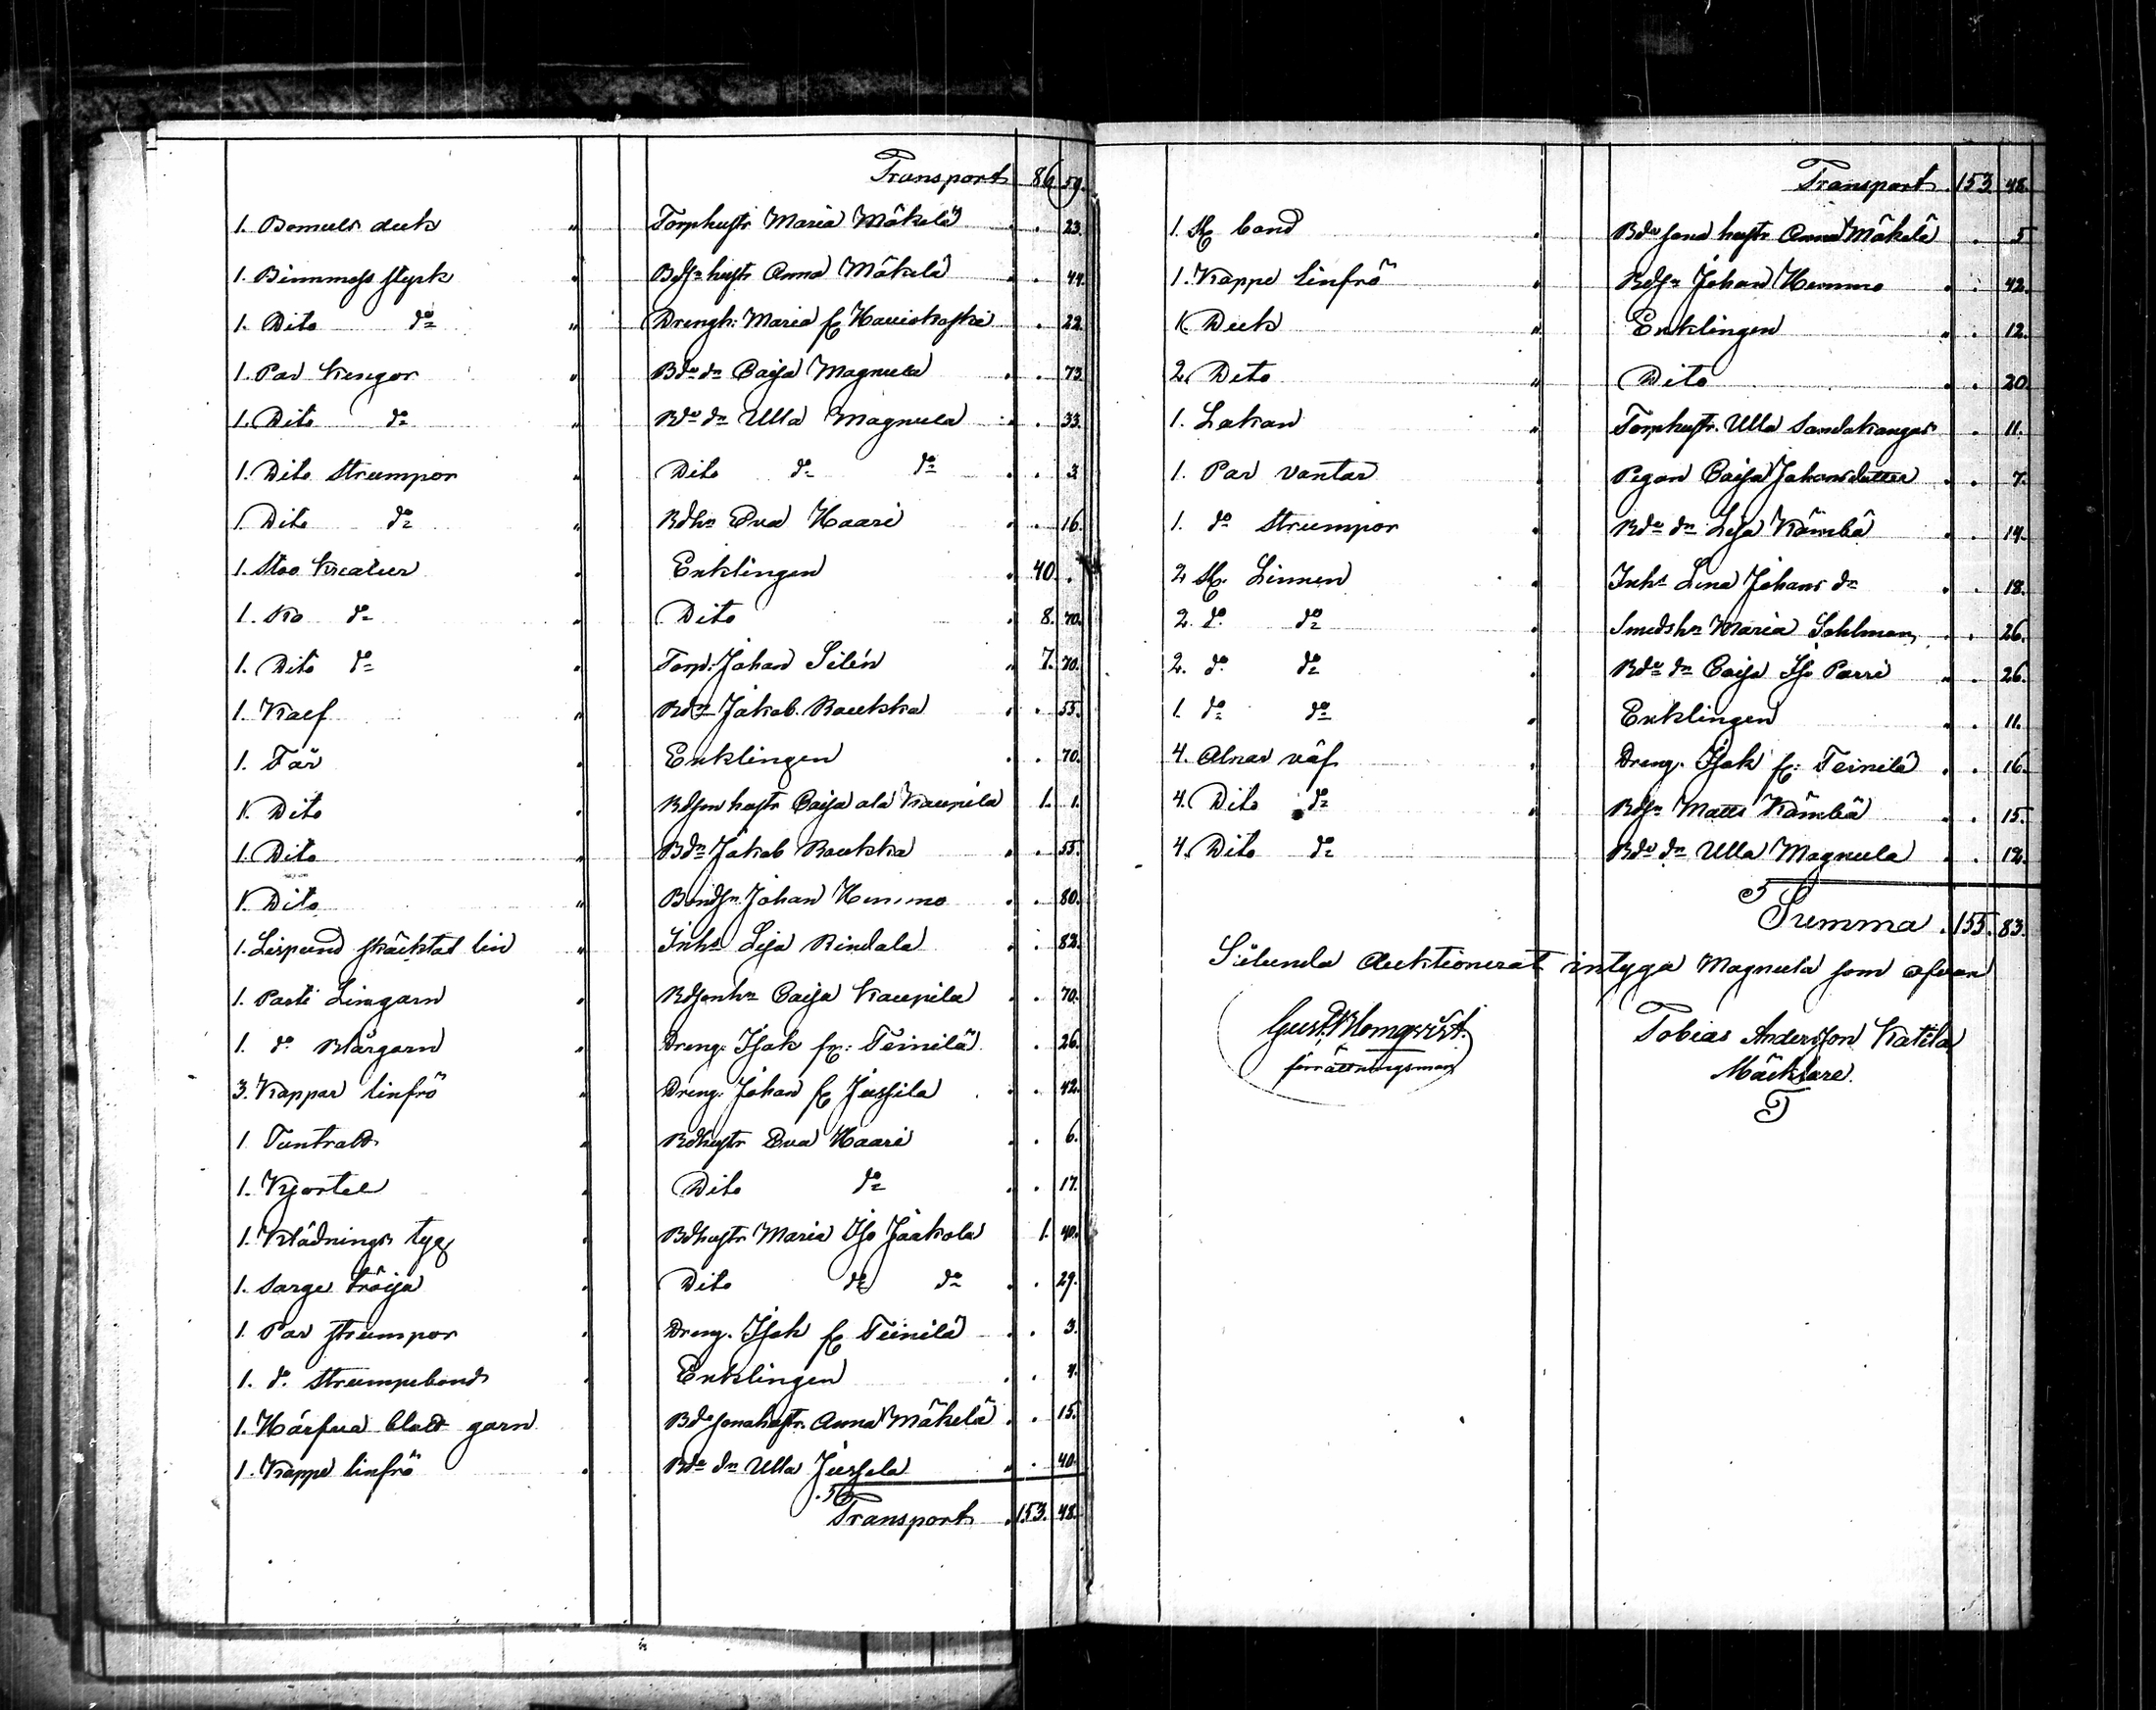 Transport 86 59.
1. Bomuls duk " Torphustr Maria Mäkelä . . 23.
1. Bimmess styck " Bdsn hustr Anna Mäkelä . . 44.
1. Dito do " Drengh: Maria fr Hauiskoski . 22.
1. Par kengor " Bde dr Caisa Magnula . . 73.
1. Dito do " Bde dr Ulla Magnula . . 33.
1. Dito strumpor " Dito do do . . 3
1. Dito do " Bdhu Eva Haari . . 16.
1. Stoo kreatur . Enklingen . 40 .
1. Ko do " Dito . 8. 70.
1. Dito do . Torp: Johan Silén " 7. 70.
1. Kalf " Bdn Jakob Raukka . . 55.
1. Får . Enklingen . . 70.
1. Dito . Bdson hustr Caisa ala Kaupila 1. 1.
1. Dito " Bdn Jakob Raukka . . 55.
1. Dito " Bondsn Johan Hemmo . . 80.
1. Lispund skäcktat lin " Inhs Lisa Rindala . . 82.
1. Parti Lingarn . Bdsonhu Caisa Kaupila . . 70.
1. do Blårgarn . Dreng. Isak fr: Teinilä . 26.
3. Kappar linfrö " Dreng. Johan fr Jussila . . 42.
1. Bdhustr Eva Haari . . 6.
1. Kjortel . Dito do . . 17.
1. Klädnings tyg . Bdhustr Maria Iso Jaakola 1. 40.
1. Sarge tröija . Dito do do . . 29.
1. Par strumpor . Dreng. Isak fr Teinilä . . 3.
1. do strumpeband . Enklingen . . 4.
1. Härfva blott garn Bdesonahustr. Anna Mäkelä . . 15.
1. Kappe linfrö . Bde dr Ulla Jussila " . 40.
Transport . 153. 48.
Transport . 153. 48.
1. St band . Bde sona hustr Anna Mäkelä . 5
1. Kappe linfrö " Bdsn Johan Hemmo . . 42.
1. Duk " Enklingen " . 12.
2. Dito " Dito . . 20.
1. Lakan " Torphustr. Ulla Sandakangas . 11.
1. Par vantar . Pigan Caisa Johansdotter . . 7.
1. do strumpor . Bde dr Lisa Kämbä . . 14.
2 St. Linnen . Inhs Lena Johans dr . . 18.
2. do do . Smedshu Maria Sohlman . . 26.
2. do do . Bde dr Caisa Iso Parri " . 26.
1. do do " Enklingen . . 11.
4. Alnar väf . Dreng. Isak fr: Teinilä . . 16.
4. Dito do " Bdsn Matts Kämbä . . 15.
4. Dito do Bde dr Ulla Magnula . . 12.
Summa . 155. 83.
Sålunda Auktionerat intyga Magnula som ofvan
Gust. Blomqvist. Tobias Andersson Katila
förrättningsman Mäcklare.